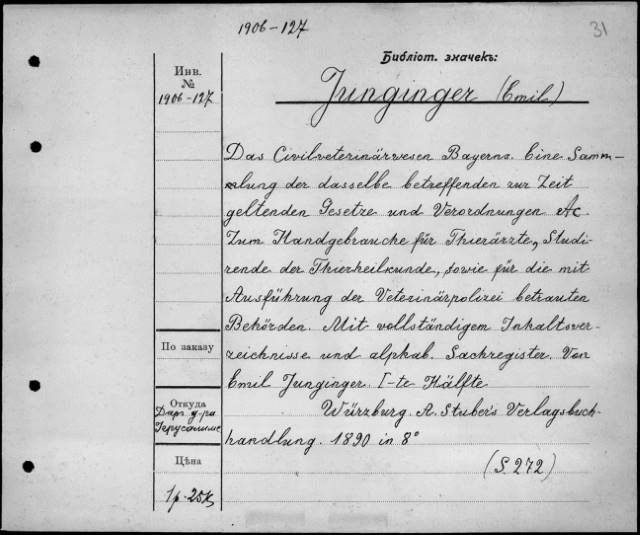 1906-127
31
Библіот. значекъ:
Инв.
№
1906-127
Junginger (Emil)
Das Civilveterinärwesen Bayerns. Eine Samm-
mlung der dasselbe betreffenden zur Zeit
geltenden Gesetze und Verordnungen &c.
Zum Handgebrauche für Thierärzte, Studi-
rende der Thierheilkunde, sowie für die mit
Ausführung der Veterinärpolizei betrauten
Behörden. Mit vollständigem Inhaltsver-
zeichnisse und alphab. Sachregister. Von
Emil Junginger. I-te Hälfte
Würzburg. A. Stuber's Verlagsbuch-
handlung. 1890 in 8°
(S. 272)
По заказу
Откуда
Даръ д-ра
Цѣна
1р. 25к